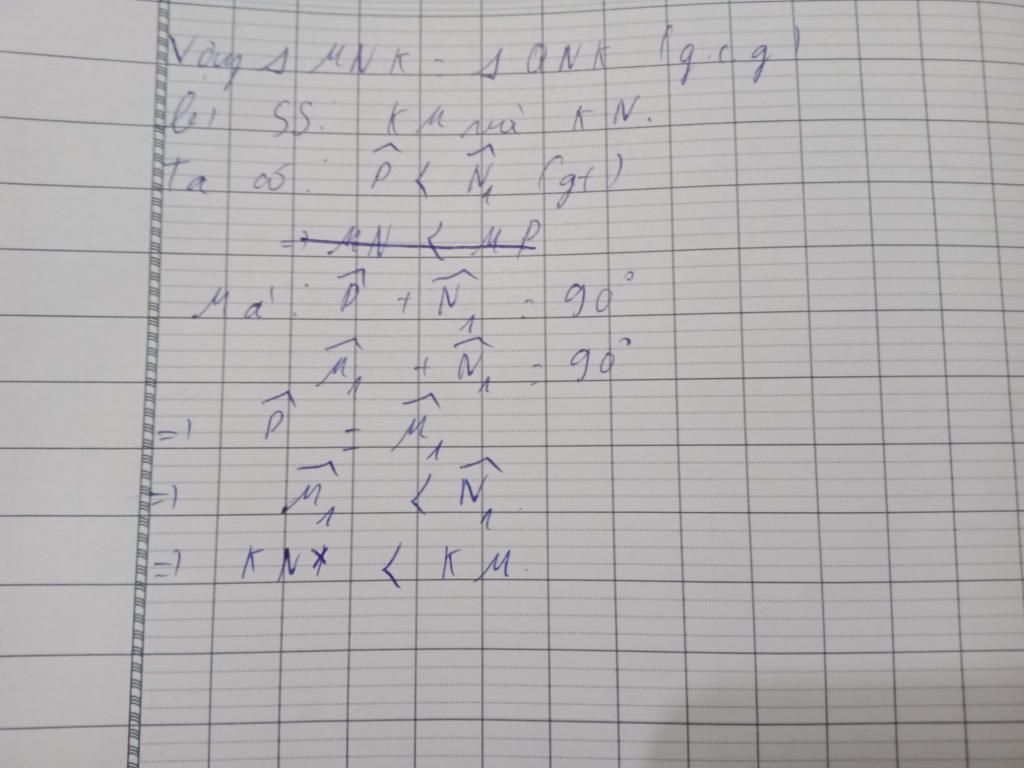 Vậy Δ MNK = Δ QNK (g.c.g)
b) SS: KM và KN.
Ta có: P̂ < N̂₁ (gt)
=> MN < MP
Mà: P̂ + N̂₁ = 90°
M̂₁ + N̂₁ = 90°
=> P̂ = M̂₁
=> M̂₁ < N̂₁
=> KN < KM.